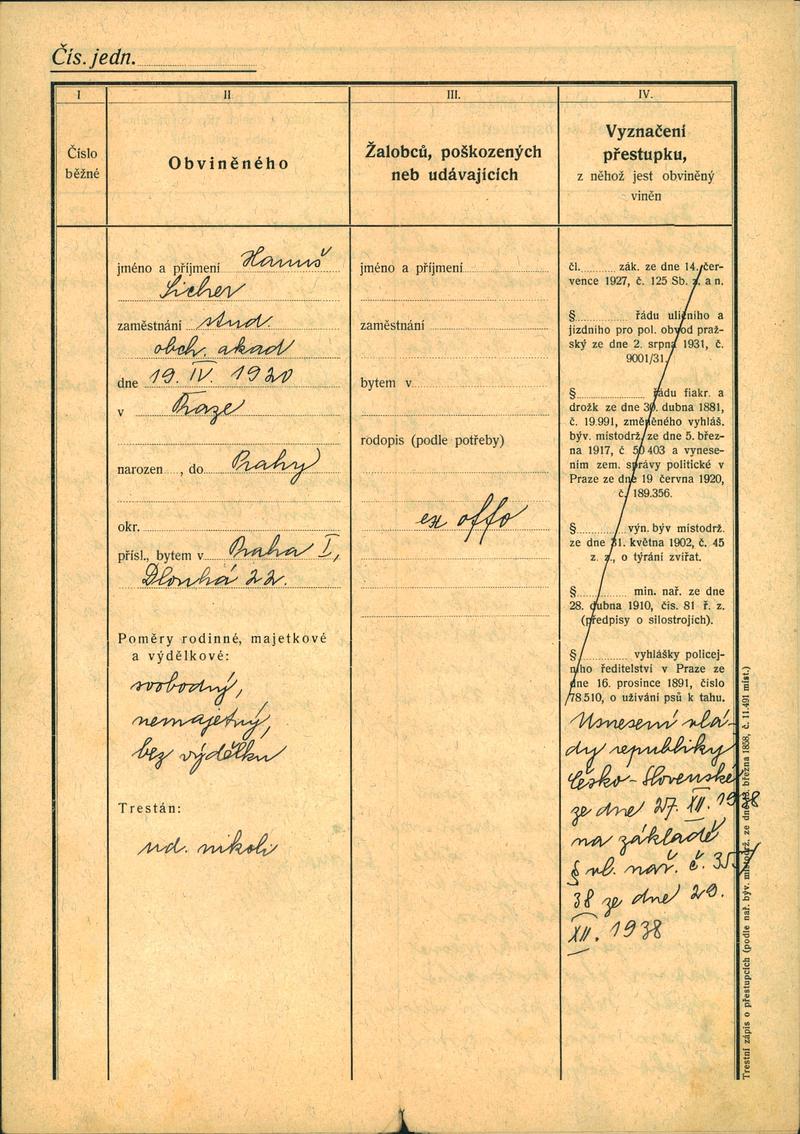 Čís. jedn.
I
II
III.
IV.
Číslo
běžné
Obviněného
Žalobců, poškozených
neb udávajících
Vyznačení
přestupku,
z něhož jest obviněný
viněn
jméno a příjmení Hanuš
Sicher
zaměstnání stud.
obch. akad
dne 19. IV. 1920
v Praze
narozen , do Prahy
okr.
přísl., bytem v Praha I,
Dlouhá 22.
Poměry rodinné, majetkové
a výdělkové:
svobodný,
nemajetný,
bez výdělku
Trestán:
ud. nikoli
jméno a příjmení
zaměstnání
bytem v
rodopis (podle potřeby)
ex offo
čl. zák. ze dne 14. čer-
vence 1927, č. 125 Sb. z. a n.
§ řádu uličního a
jízdního pro pol. obvod praž-
ský ze dne 2. srpna 1931, č.
9001/31.
§ řádu fiakr. a
drožk ze dne 30. dubna 1881,
č. 19.991, změněného vyhláš.
býv. místodrž. ze dne 5. břez-
na 1917, č 50 403 a vynese-
ním zem. správy politické v
Praze ze dne 19 června 1920,
č. 189.356.
§ výn. býv místodrž.
ze dne 31. května 1902, č. 45
z. z., o týrání zvířat.
§ min. nař. ze dne
28. dubna 1910, čís. 81 ř. z.
(předpisy o silostrojích).
§ vyhlášky policej-
ního ředitelství v Praze ze
dne 16. prosince 1891, číslo
78510, o užívání psů k tahu.
Usnesení vlá-
dy republiky
Česko-Slovenské
ze dne 27. XII. 1938
na základě
§ vl. nař. č.
38 ze dne 29.
XII. 1938
Trestní zápis o přestupcích (podle nař. býv. místodrž. ze dne března 1858, č. 11.491 míst.)